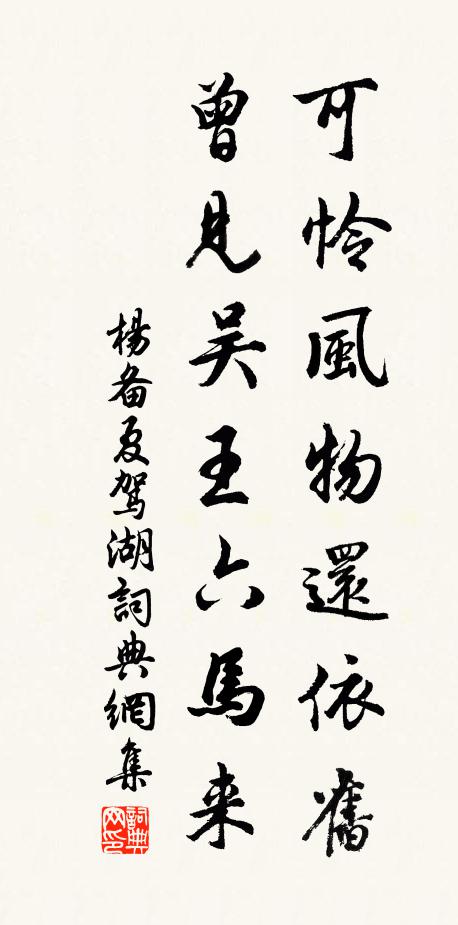 可怜風物還依舊
曾見吴王六馬来
楊备夏駕湖詞典網集
詞典网印